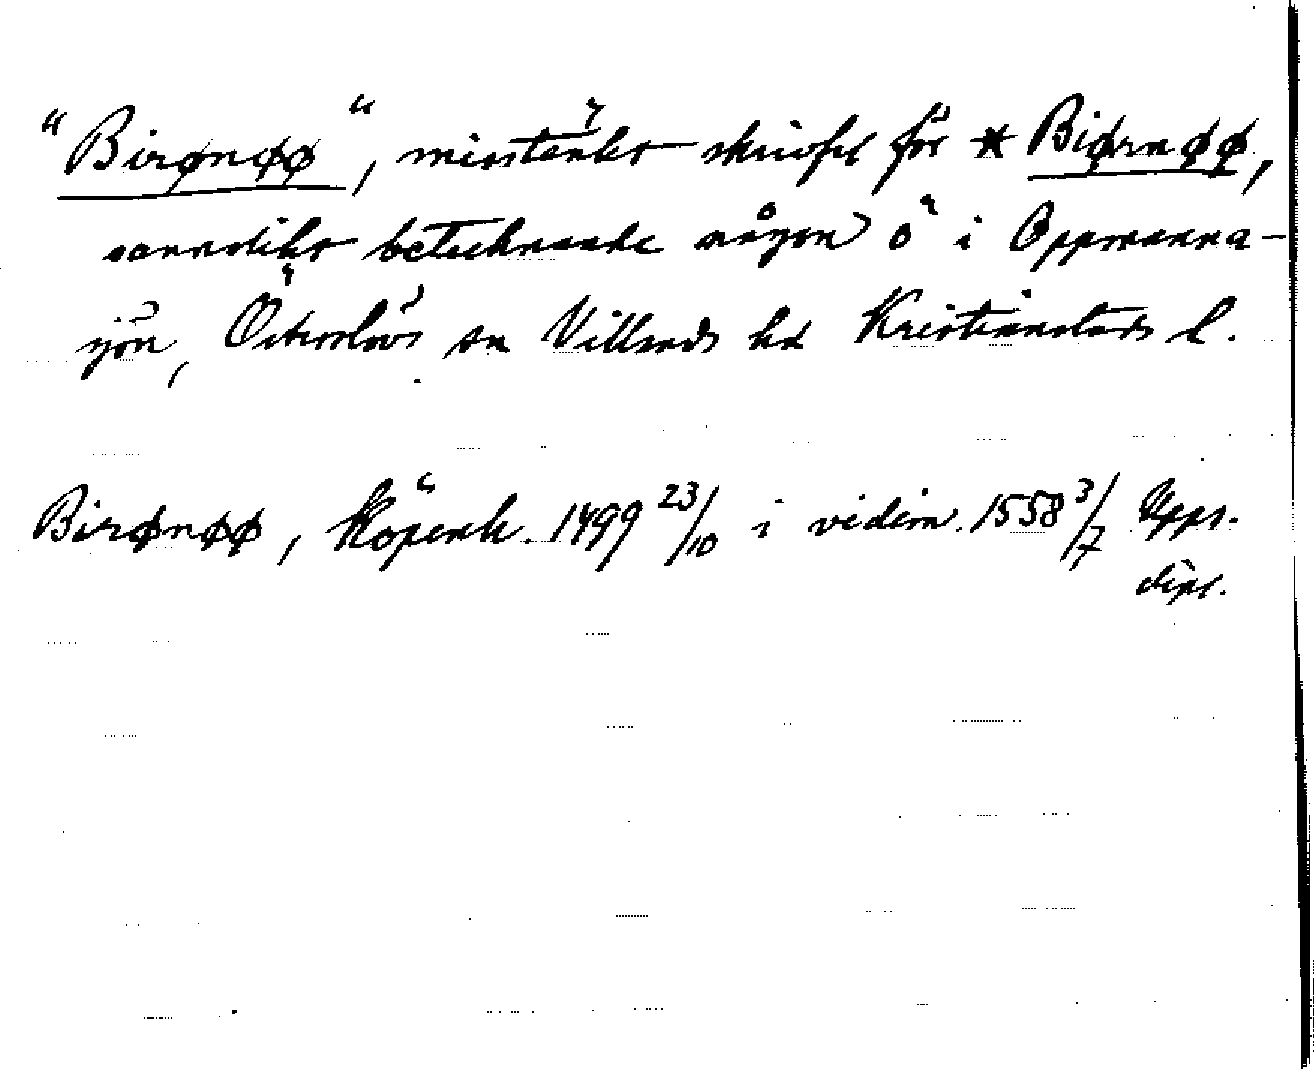 "Birønøø", misstänkt skrivfel för * Biørnøø,
sannolikt betecknande någon ö i Oppmanna-
sjön, Österslövs sn Villands hd Kristianstads l.
Birønøø, Köpenh. 1499 23/10 i vidim. 1558 3/7 Upps.
dipl.